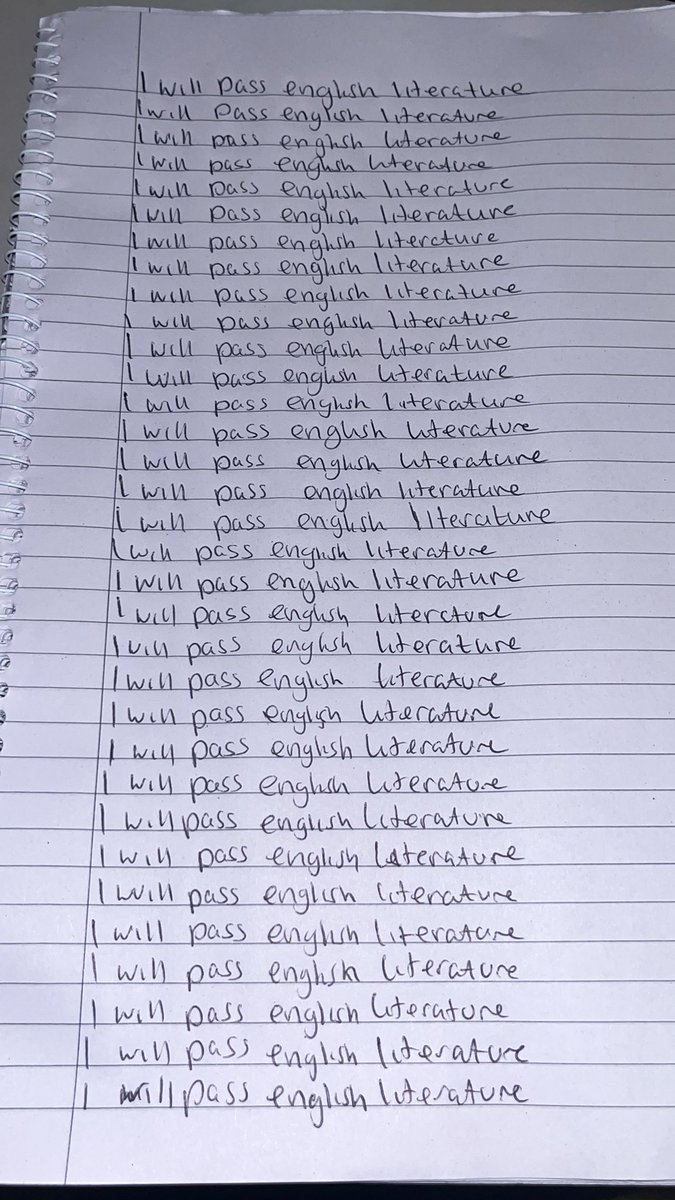 I will pass english literature
I will pass english literature
I will pass english literature
I will pass english literature
I will pass english literature
I will pass english literature
I will pass english literature
I will pass english literature
I will pass english literature
I will pass english literature
I will pass english literature
I will pass english literature
I will pass english literature
I will pass english literature
I will pass english literature
I will pass english literature
I will pass english literature
I will pass english literature
I will pass english literature
I will pass english literature
I will pass english literature
I will pass english literature
I will pass english literature
I will pass english literature
I will pass english literature
I will pass english literature
I will pass english literature
I will pass english literature
I will pass english literature
I will pass english literature
I will pass english literature
I will pass english literature
I will pass english literature